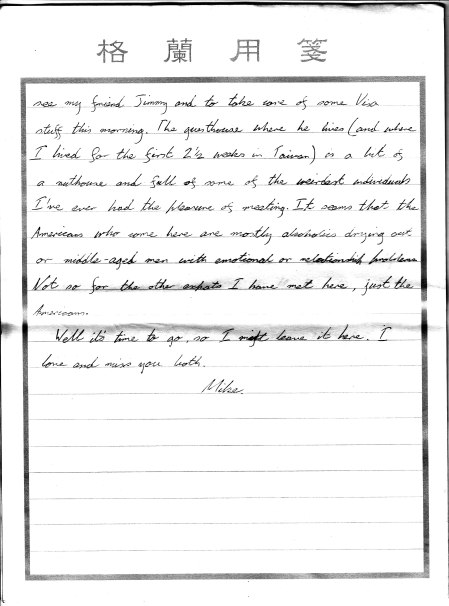 格蘭用箋
see my friend Jimmy and to take care of some Visa
stuff this morning. The guesthouse where he lives (and where
I lived for the first 2½ weeks in Taiwan) is a bit of
a nuthouse and full of some of the weirdest individuals
I've ever had the pleasure of meeting. It seems that the
Americans who come here are mostly alcoholics drying out
or middle-aged men with emotional or relationship problems
Not so for the other expats I have met here, just the
Americans.
Well it's time to go, so I might leave it here. I
love and miss you both.
Mike.